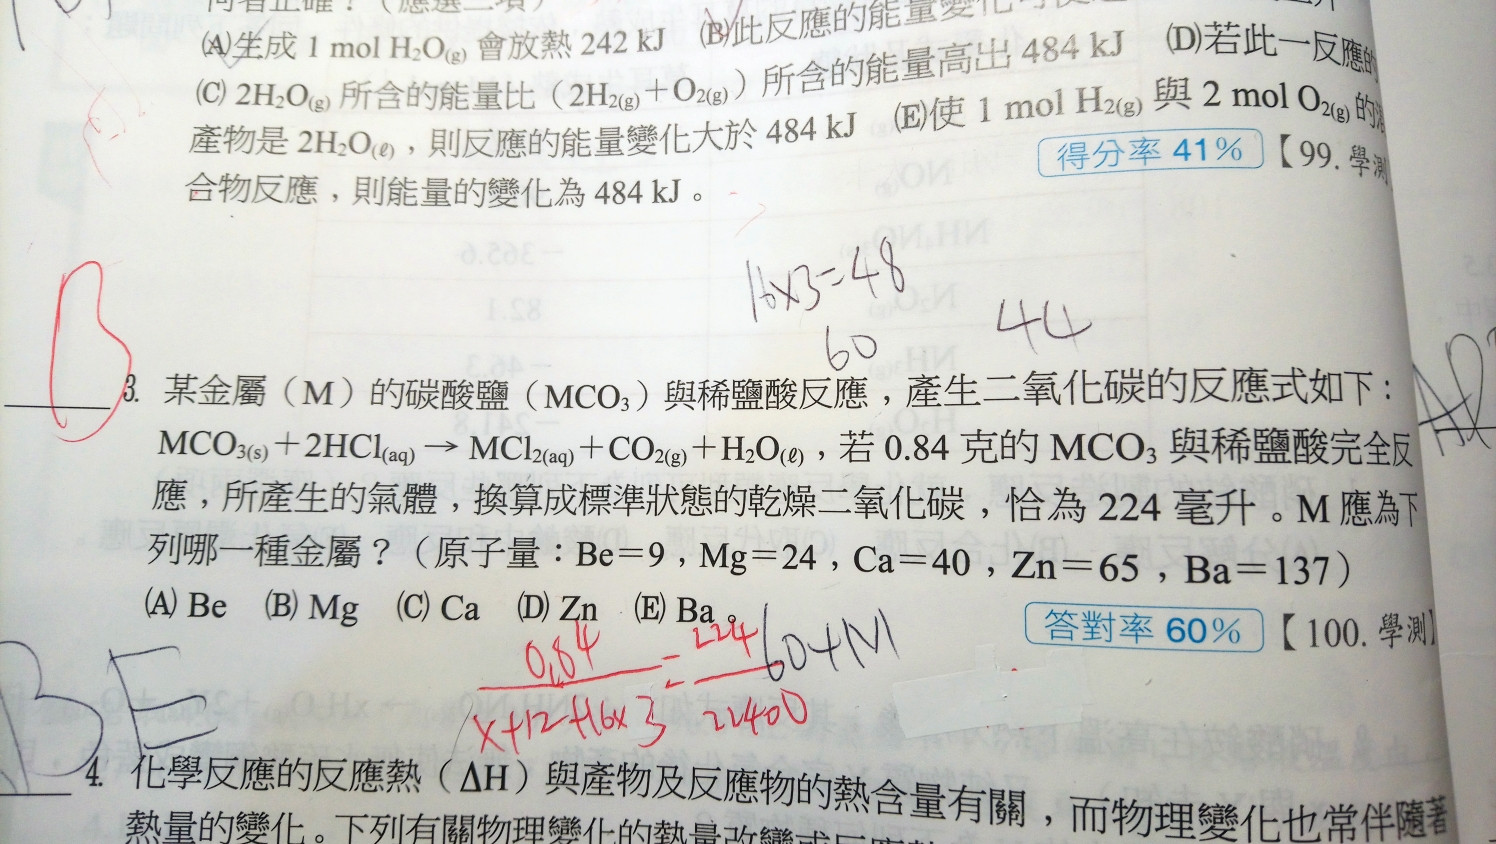 (A)生成 1 mol H₂O(g) 會放熱 242 kJ (B)此反應的能量變化可
(C) 2H₂O(g) 所含的能量比（2H₂(g)＋O₂(g)）所含的能量高出 484 kJ (D)若此一反應的
產物是 2H₂O(ℓ)，則反應的能量變化大於 484 kJ (E)使 1 mol H₂(g) 與 2 mol O₂(g) 的
合物反應，則能量的變化為 484 kJ。 得分率 41% 【99. 學測
16×3=48
60 44
B
3. 某金屬（M）的碳酸鹽（MCO₃）與稀鹽酸反應，產生二氧化碳的反應式如下：
MCO₃(s)＋2HCl(aq) → MCl₂(aq)＋CO₂(g)＋H₂O(ℓ)，若 0.84 克的 MCO₃ 與稀鹽酸完全反
應，所產生的氣體，換算成標準狀態的乾燥二氧化碳，恰為 224 毫升。M 應為下
列哪一種金屬？（原子量：Be＝9，Mg＝24，Ca＝40，Zn＝65，Ba＝137）
(A) Be (B) Mg (C) Ca (D) Zn (E) Ba。 答對率 60% 【100. 學測】
0.84 = 224 60+M
x+12+16×3 22400
BE
4. 化學反應的反應熱（ΔH）與產物及反應物的熱含量有關，而物理變化也常伴隨著
熱量的變化。下列有關物理變化的熱量改變或反應熱